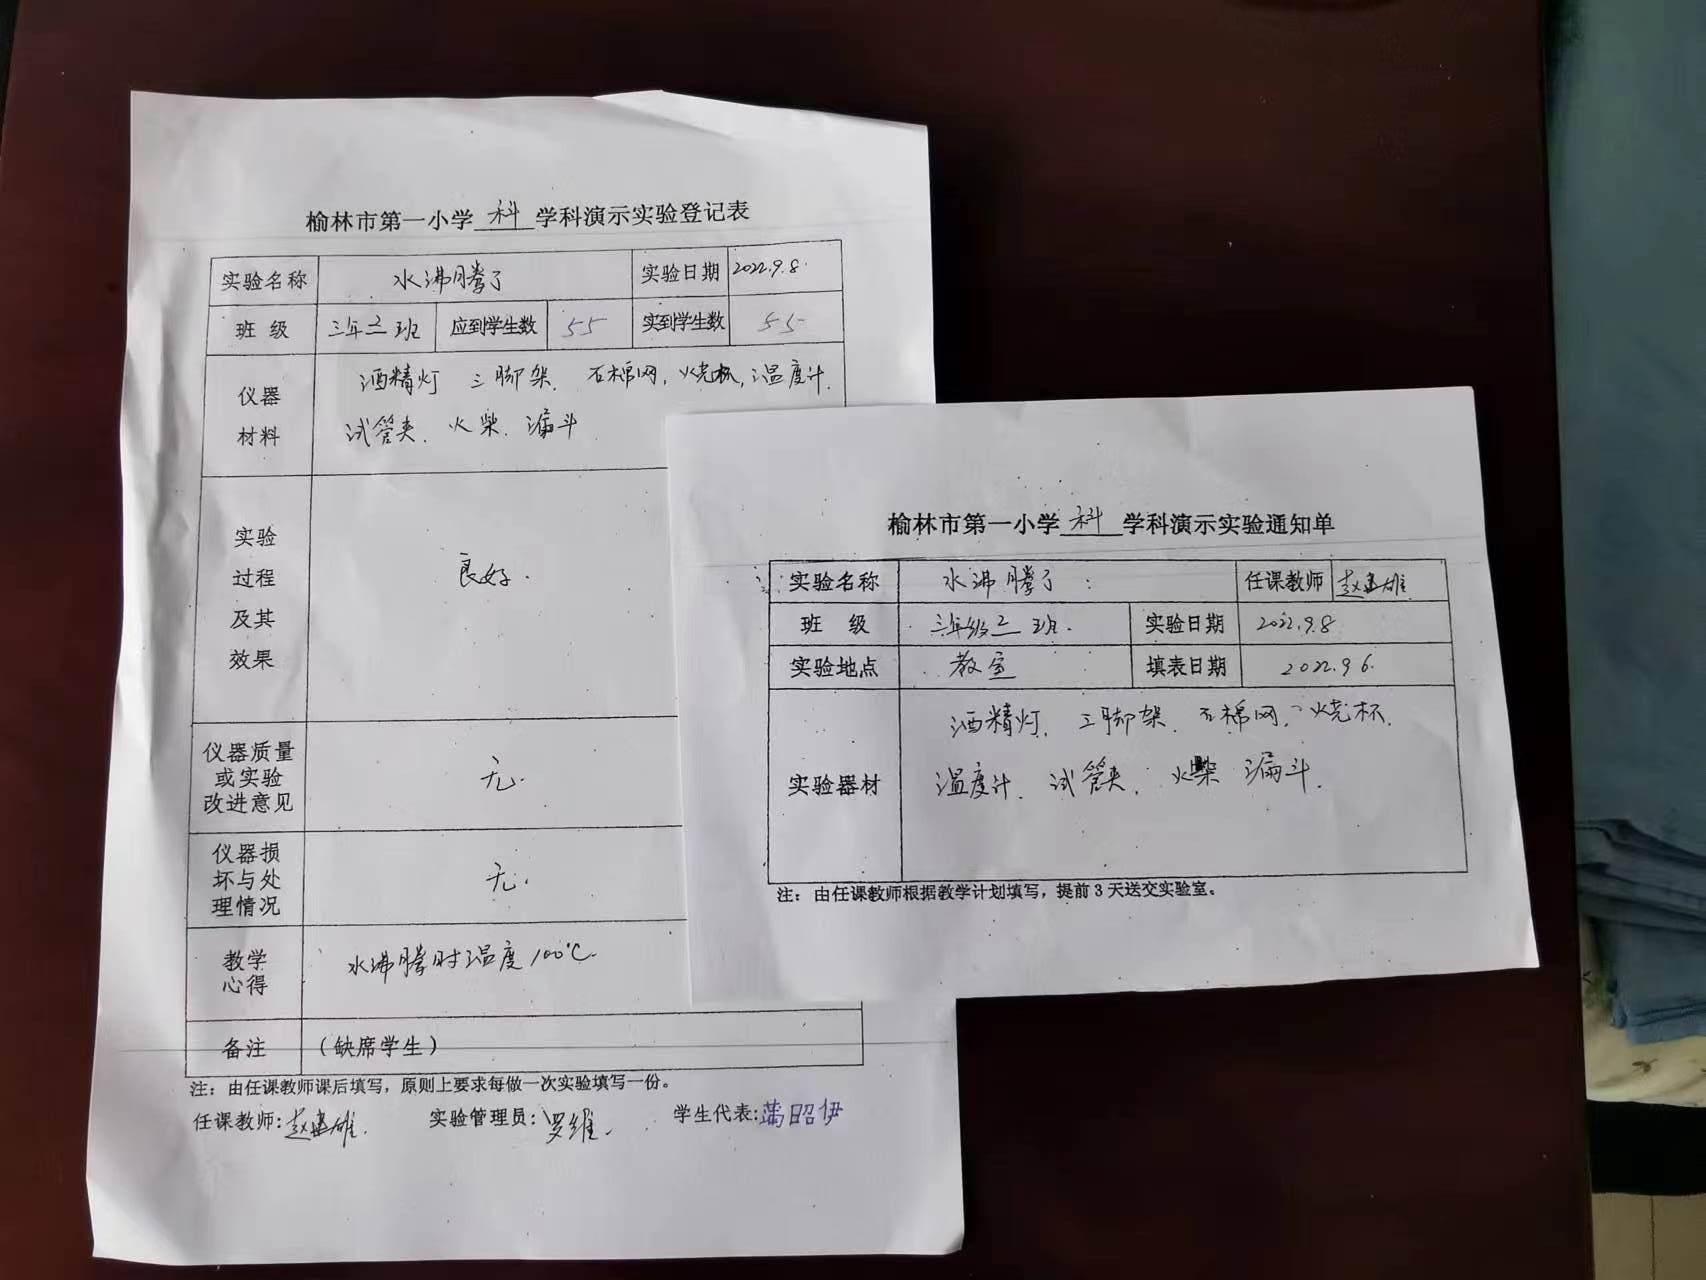 榆林市第一小学 科 学科演示实验登记表
实验名称 水沸腾了 实验日期 2022.9.8.
班 级 三年二班 应到学生数 55 实到学生数 55
仪器材料 酒精灯 三脚架、石棉网、烧杯、温度计、
试管夹、火柴、漏斗
实验
过程
及其
效果
良好.
仪器质量
或实验
改进意见
无.
仪器损
坏与处
理情况
无.
教学
心得
水沸腾时温度100℃.
备注 (缺席学生)
注：由任课教师课后填写，原则上要求每做一次实验填写一份。
任课教师: 赵建雄. 实验管理员: 罗维. 学生代表: 昭伊
榆林市第一小学 科 学科演示实验通知单
实验名称 水沸腾了 任课教师 赵建雄
班 级 三年级二班. 实验日期 2022.9.8
实验地点 教室 填表日期 2022.9.6.
实验器材 酒精灯、三脚架、石棉网、烧杯、
温度计、试管夹、火柴 漏斗.
注：由任课教师根据教学计划填写，提前3天送交实验室。